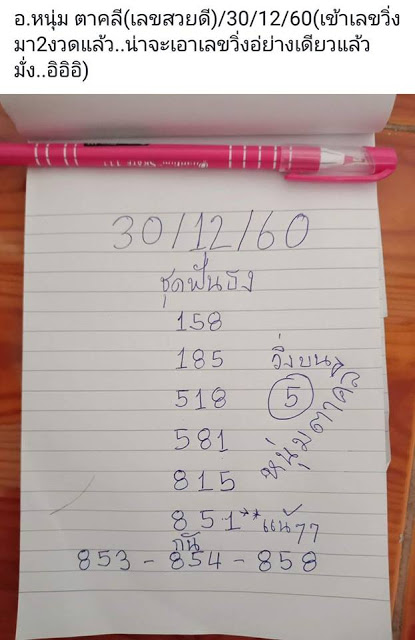 อ.หนุ่ม ตาคลี(เลขสวยดี)/30/12/60(เข้าเลขวิ่ง
มา2งวดแล้ว..น่าจะเอาเลขวิ่งอ่ย่างเดียวแล้ว
มั่ง..อิอิอิ)
30/12/60
ชุดฟันธง
158
185
วิ่งบน
518
5
581
หนุ่มตาคลี
815
851** แน้77
กัน
853 - 854 - 858